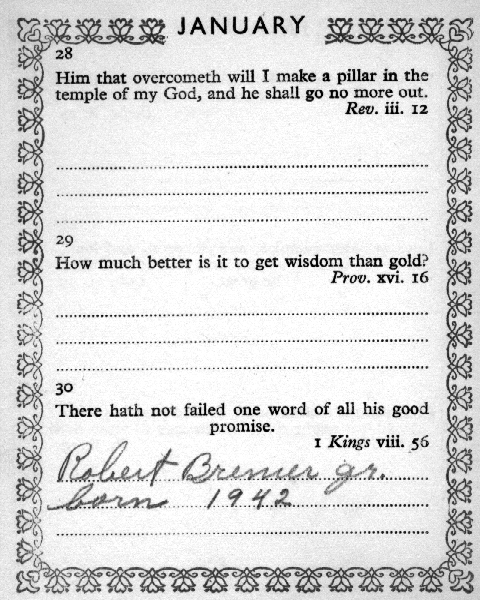 JANUARY
28
Him that overcometh will I make a pillar in the
temple of my God, and he shall go no more out.
Rev. iii. 12
29
How much better is it to get wisdom than gold?
Prov. xvi. 16
30
There hath not failed one word of all his good
promise.
1 Kings viii. 56
Robert Bremer Jr.
born 1942